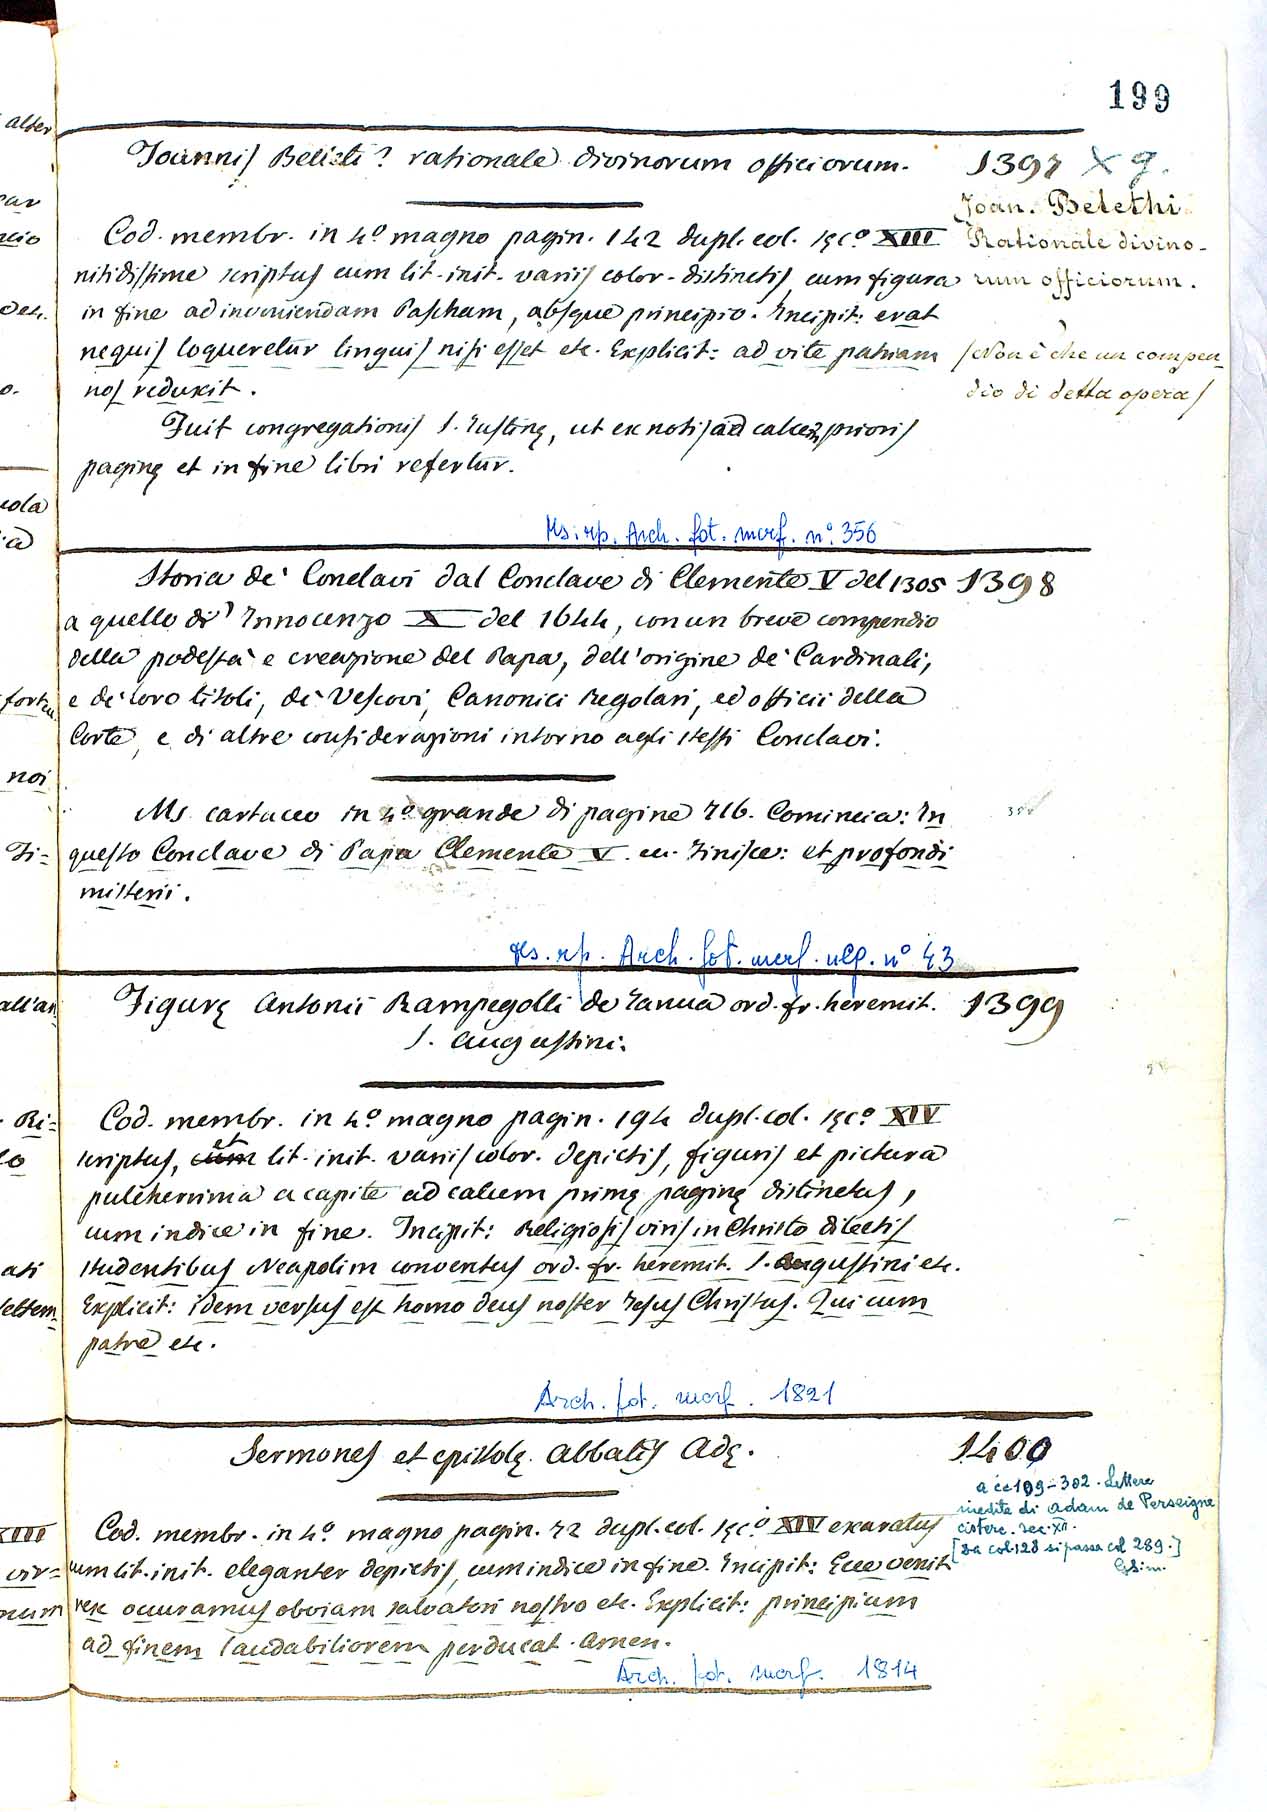 199
Joannis Beleti? rationale divinorum officiorum. 1397 X 9.
Joan. Belethi
Rationale divino-
rum officiorum.
Cod. membr. in 4º magno pagin. 142 dupl. col. sęcº XIII
nitidissime scriptus cum lit. init. variis color. distinctis, cum figura
in fine ad inveniendam Pascham, absque principio. Incipit: erat
nequis loqueretur linguis nisi esset etc. Explicit: ad vitę patriam
nos reduxit.
(Non è che un compen
dio di detta opera)
Fuit congregationis S. Justinę, ut ex notis ad calcem prioris
paginę et in fine libri refertur.
Ms. rip. Arch. fot. morf. nº. 356
Storia de' Conclavi dal Conclave di Clemente V del 1305 1398
a quello di Innocenzo X del 1644, con un breve compendio
della podestà e creazione del Papa, dell'origine de' Cardinali,
e de' loro titoli, de' Vescovi, Canonici Regolari, ed officii della
Corte, e di altre considerazioni intorno agli stessi Conclavi.
Ms. cartaceo in 4º grande di pagine 716. Comincia: In
questo Conclave di Papa Clemente V. ec. Finisce: et profondi
misterii.
Ms. rip. Arch. fot. morf. neg. nº 43
Figurę Antonii Rampegolli de Janua ord. fr. heremit. 1399
S. Augustini.
Cod. membr. in 4º magno pagin. 194 dupl. col. sęcº XIV
scriptus, cum et lit. init. variis color. depictis, figuris et pictura
pulcherrima a capite ad calcem primę paginę distinctus,
cum indice in fine. Incipit: Religiosis viris in Christo dilectis
studentibus Neapolim conventus ord. fr. heremit. S. Augustini etc.
Explicit: idem versus est homo deus noster Jesus Christus. Qui cum
patre etc.
Arch. fot. morf. 1821
Sermones et epistolę Abbatis Adę. 1400
a cc 109-302. Lettere
inedite di Adam de Perseigne
cisterc. sec. XII.
[Da col. 128 si passa col. 289.]
Cod. membr. in 4º magno pagin. 72 dupl. col. sęcº XIV exaratus
cum lit. init. eleganter depictis, cum indice in fine. Incipit: Ecce venit
rex occuramus obviam salvatori nostro etc. Explicit: principium
ad finem laudabiliorem perducat. Amen.
Arch. fot. morf. 1814
alter
car
o.
uola
noi
Fi=
all'an
Ri=
lo
ati
XIII
vir=
num